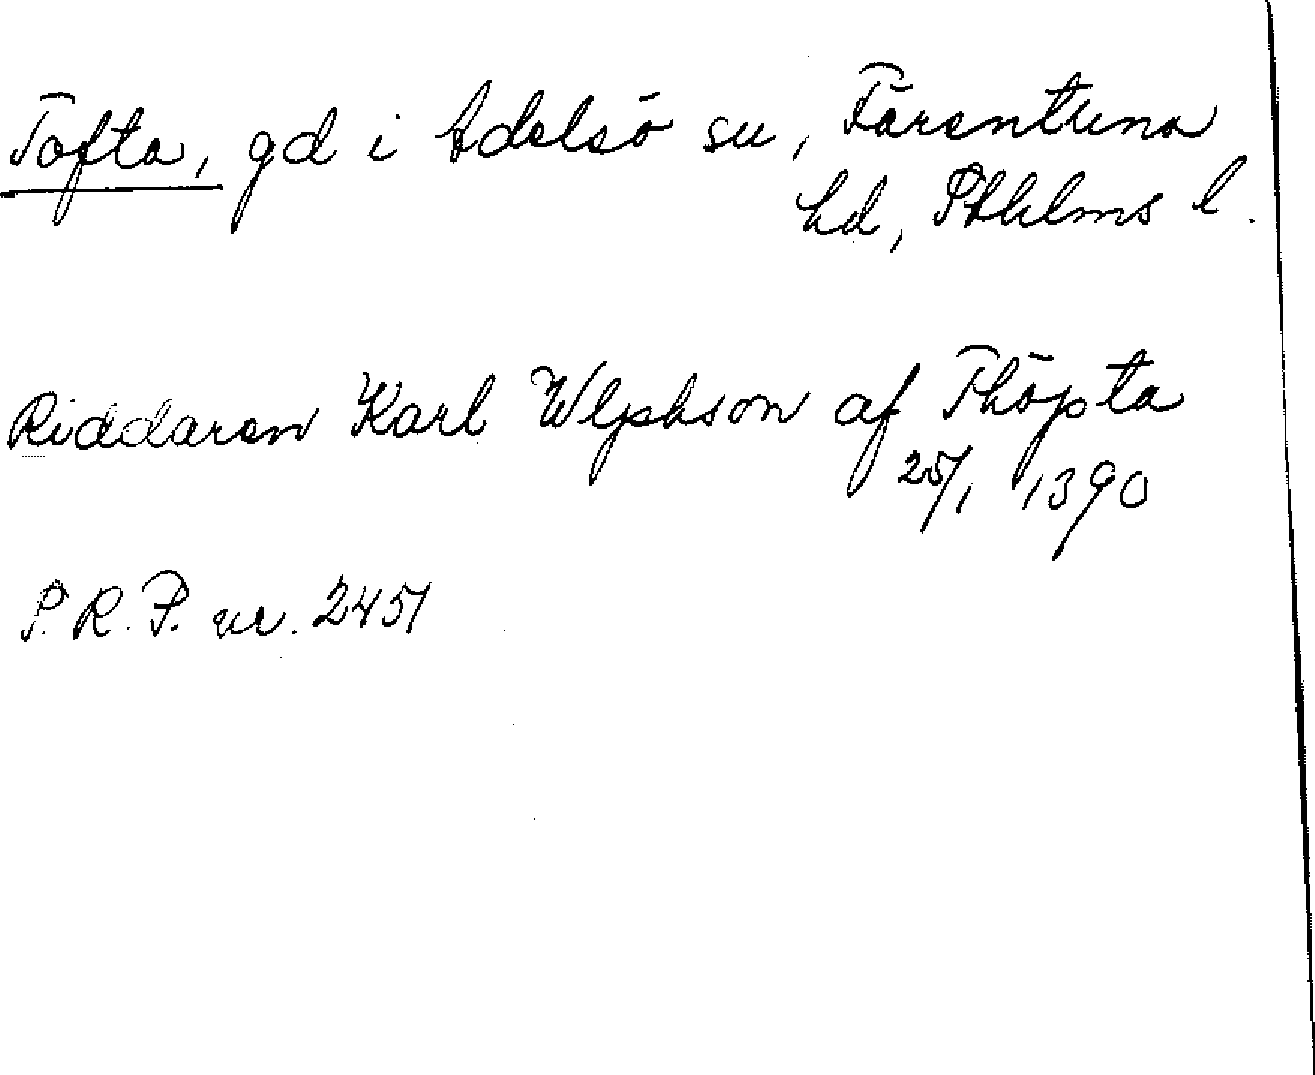 Tofta, gd i Adelsö sn, Färentuna
hd, Sthlms l.
Riddaren Karl Wlphson af Thöpta
25/1 1390
S.R.P. nr. 2451